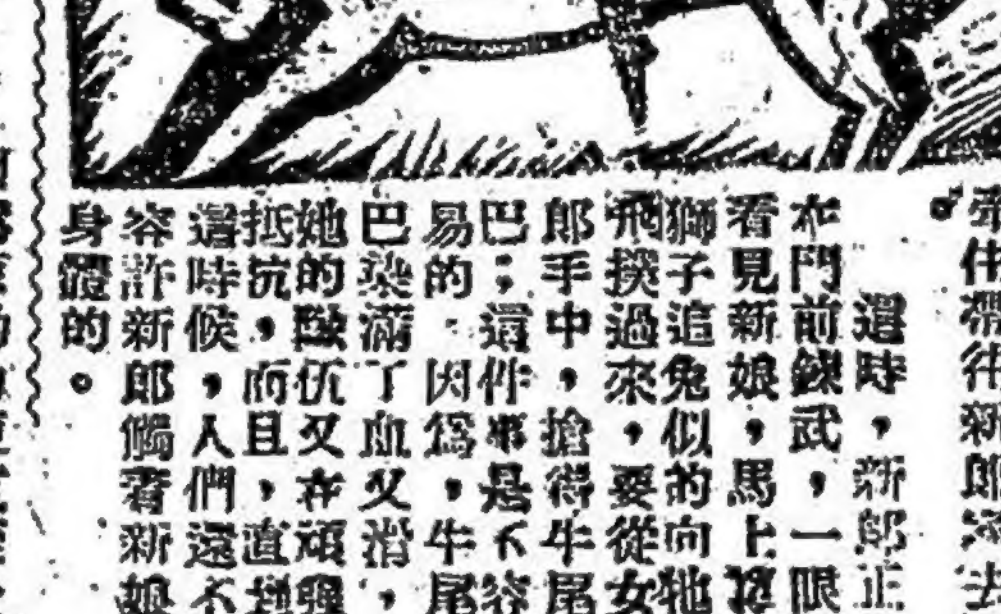 牽伴帶往新郎家去
。
這時，新郎正
在門前鍊武，一眼
看見新娘，馬上
獅子追兔似的向牠
飛撲過來，要從女
郎手中，搶得牛尾
巴；這件事是不容
易的：因爲，牛尾
巴染滿了血又滑，
她的隊伍又在頑强
抵抗，而且，直到
這時候，人們還不
容許新郎觸着新娘
身體的。